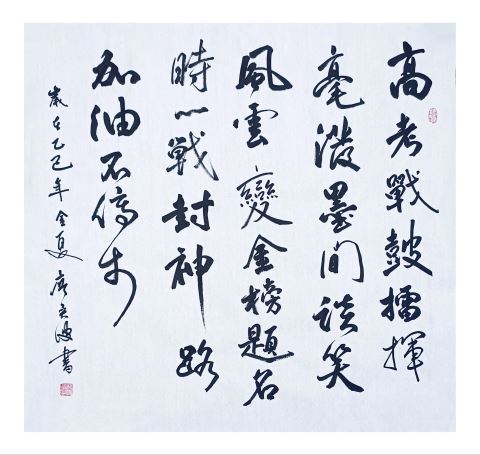 高考戰鼓擂揮
毫潑墨间談笑
風雲變金榜題名
時一戰封神路
加油不停步
歲在乙巳年金夏 波書